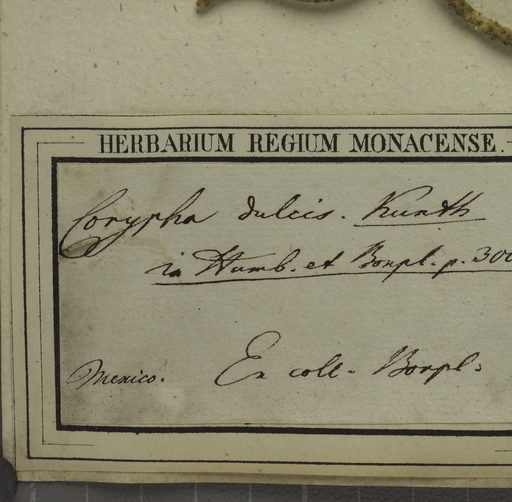 HERBARIUM REGIUM MONACENSE.
Corypha dulcis. Kunth
in Humb. et Bonpl. p. 300
Mexico. Ex coll. Bonpl.